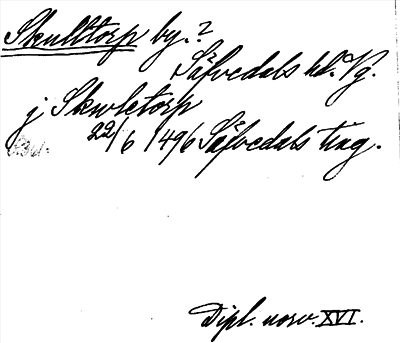 Skulltorp by.?
Säfvedals hd. Vg.
j Skwletorp
22/6 1496 Säfvedals ting.
Dipl. norv. XVI.